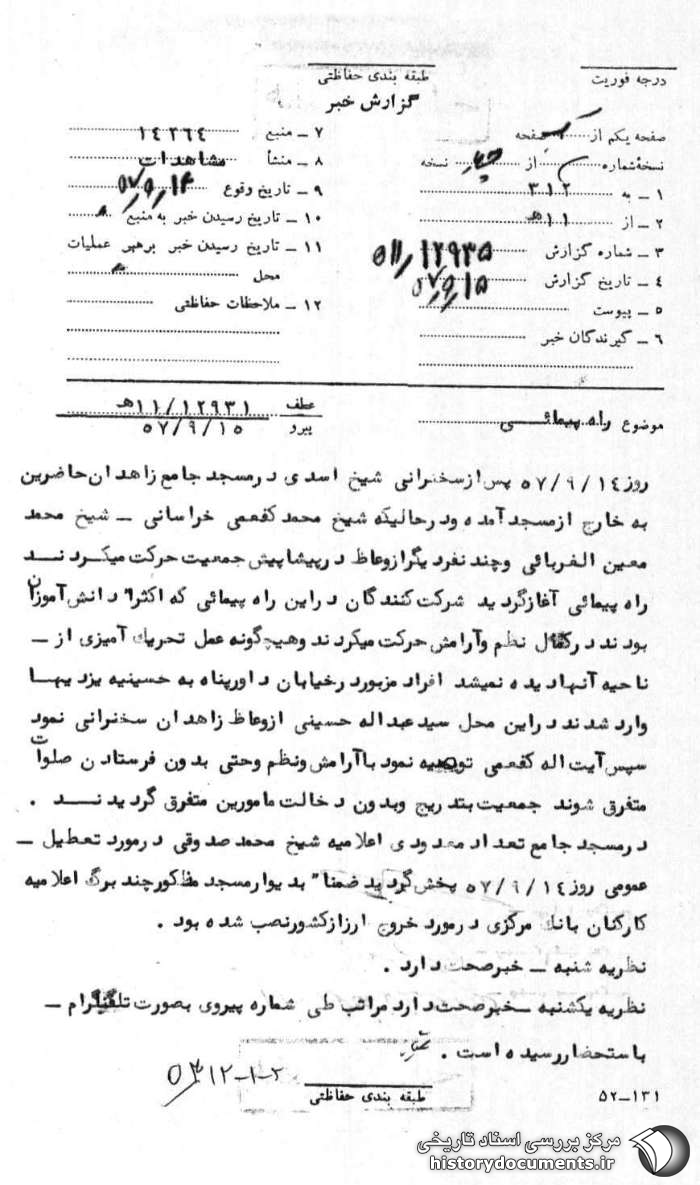 درجه فوریت
طبقه بندی حفاظتی
گزارش خبر
صفحه یکم از صفحه
نسخهٔ شماره از چهار نسخه
۱ ـ به ۳۱۲
۲ ـ از ۱۱ هـ
۳ ـ شماره گزارش ۱۲۹۳۵/ ۱۱ه
۴ ـ تاریخ گزارش ۵۷/۹/۱۵
۵ ـ پیوست
۶ ـ گیرندگان خبر
۷ ـ منبع ۱۴۲۶۴
۸ ـ منشأ مشاهدات
۹ ـ تاریخ وقوع ۵۷/۹/۱۴
۱۰ ـ تاریخ رسیدن خبر به منبع
۱۱ ـ تاریخ رسیدن خبر برهبر عملیات
محل
۱۲ ـ ملاحظات حفاظتی
موضوع راه پیمائی
عطف ۱۱/۱۲۹۳۱هـ
پیرو ۵۷/۹/۱۵
روز ۵۷/۹/۱۴ پس ازسخنرانی شیخ اسدی درمسجد جامع زاهدان حاضرین
به خارج ازمسجدآمده ودرحالیکه شیخ محمد کفعمی خراسانی ـ شیخ محمد
معین الغربائی وچند نفردیگرازوعاظ درپیشاپیش جمعیت حرکت میکردنــد
راه پیمائی آغازگردید شرکت کنندگان دراین راه پیمائی که اکثرا" دانش آموزان
بودند درکمال نظم وآرامش حرکت میکردند وهیچگونه عمل تحریك آمیزی از ـ
ناحیه آنهادیده نمیشد افراد مزبوردرخیابان داورپناه به حسینیه یزدیهــا
وارد شدند دراین محل سیدعبداله حسینی ازوعاظ زاهدان سخنرانی نمود
سپس آیت اله کفعمی توصیه نمود باآرامش ونظم وحتی بدون فرستادن صلوات
متفرق شوند جمعیت بتدریج وبدون دخالت مامورین متفرق گردیدنــد .
درمسجد جامع تعداد معدودی اعلامیه شیخ محمد صدوقی درمورد تعطیل ـ
عمومی روز ۵۷/۹/۱۴ پخش گردید ضمنا" بدیوارمسجد مذکورچند برگ اعلامیه
کارکنان بانك مرکزی درمورد خروج ارزازکشورنصب شده بود .
نظریه شنبه ـ خبرصحت دارد .
نظریه یکشنبه ـ خبرصحت دارد مراتب طی شماره پیروی بصورت تلفنگرام ـ
باستحضاررسیده است .
۳۱۲-۱-۲
طبقه بندی حفاظتی
۵۲ـ۱۳۱
مرکز بررسی اسناد تاریخی
historydocuments.ir